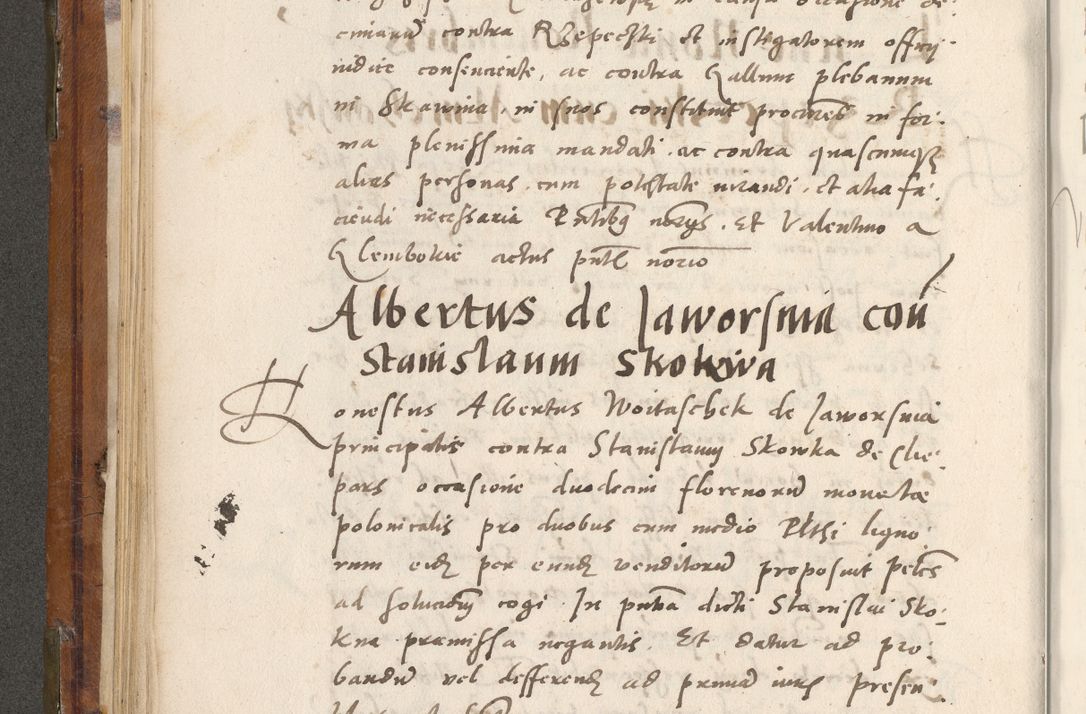 cimarum contra Rzepeczki et instigatorem officij
iudice consenciente, ac contra Gallum plebanum
in Skawina, in suos constituit procures in for-
ma plenissima mandati. ac contra quascumque
alias personas. cum potestate iurandi. et alia fa-
ciendi necessaria Pntibus notarijs. Et Valentino a
Glembokie actus pnte notario
Albertus de Jaworsnia con
Stanislaum Skokwa
Honestus Albertus Woitaschek de Jaworsnia
principalis contra Stanislaum Skowka de Cle-
pars occasione duodecim florenorum monetae
polonicalis pro duobus cum medio lligno-
rum eidem per eundem venditorum proposuit petens
ad solucionem cogi. In pntia dicti Stanislai Sko-
kna praemissa negantis. Et datur ad pro-
bandum vel defferendum ad primam iuris presen-